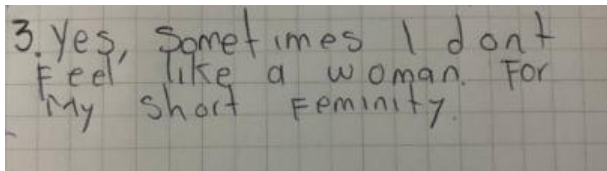 3. Yes, Sometimes I dont
Feel like a woman. For
My short Feminity.